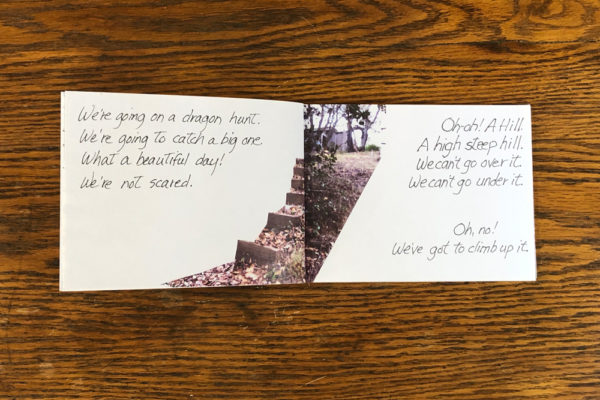 We're going on a dragon hunt.
We're going to catch a big one.
What a beautiful day!
We're not scared.
Oh-oh! A Hill.
A high steep hill.
We can't go over it.
We can't go under it.
Oh, no!
We've got to climb up it.